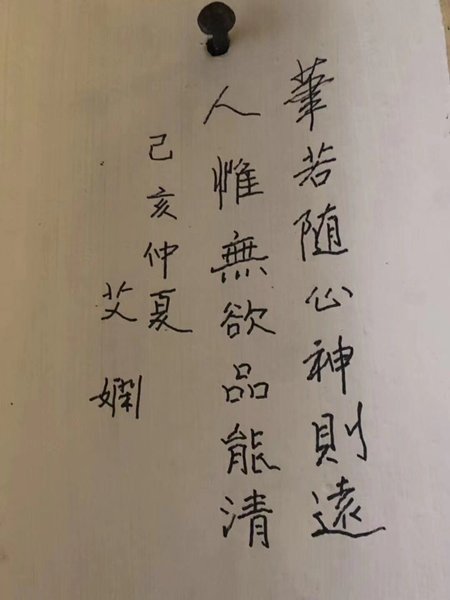 筆若随心神則遠
人惟無欲品能清
己亥仲夏
艾嫻